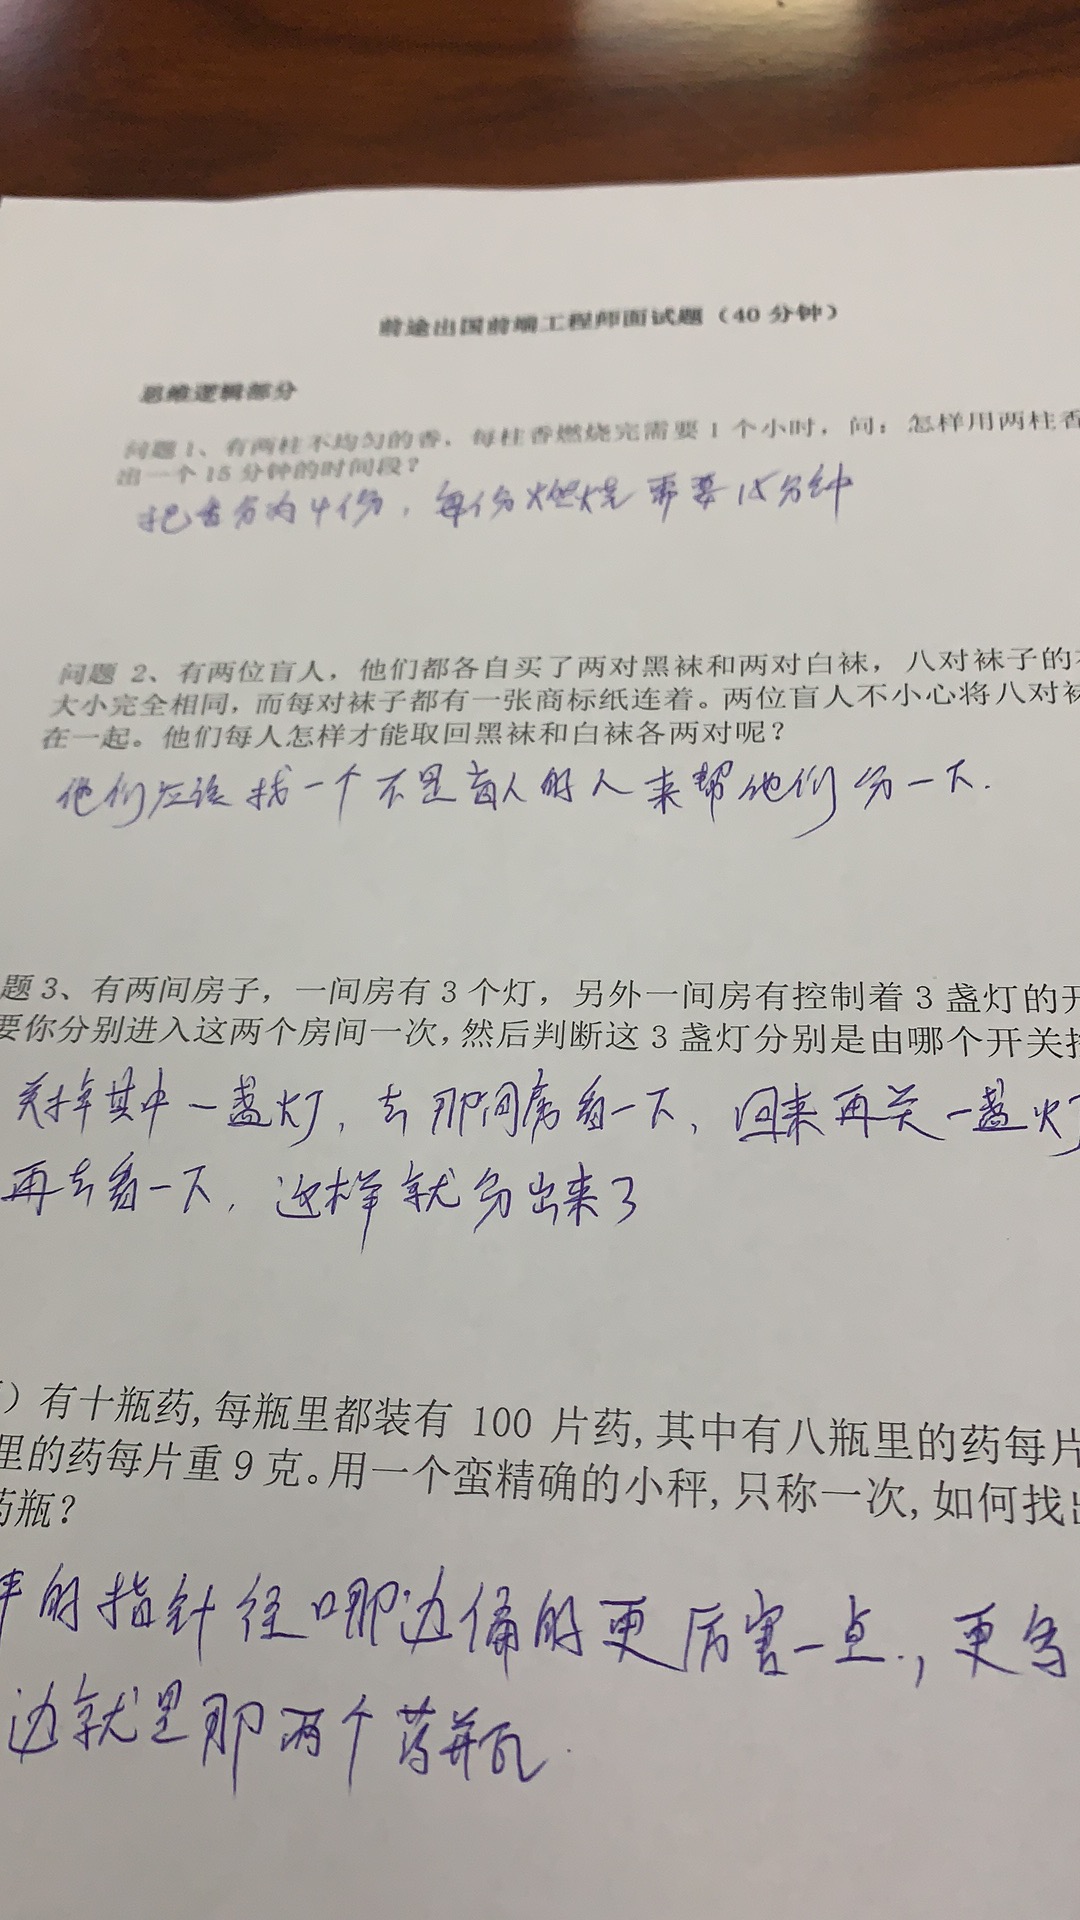 前途出国前端工程师面试题（40 分钟）
思维逻辑部分
问题 1、有两柱不均匀的香，每柱香燃烧完需要 1 个小时，问：怎样用两柱香
出一个 15 分钟的时间段？
把香分为4份，每份燃烧需要15分钟
问题 2、有两位盲人，他们都各自买了两对黑袜和两对白袜，八对袜子的
大小完全相同，而每对袜子都有一张商标纸连着。两位盲人不小心将八对袜
在一起。他们每人怎样才能取回黑袜和白袜各两对呢？
他们应该找一个不是盲人的人来帮他们分一下.
题 3、有两间房子，一间房有 3 个灯，另外一间房有控制着 3 盏灯的开
要你分别进入这两个房间一次，然后判断这 3 盏灯分别是由哪个开关控
关掉其中一盏灯，去那间房看一下，回来再关一盏灯
再去看一下，这样就分出来了
）有十瓶药，每瓶里都装有 100 片药，其中有八瓶里的药每片
里的药每片重 9 克。用一个蛮精确的小秤，只称一次，如何找出
药瓶？
的指针往哪边偏的更厉害一点，更
边就是那两个药瓶.